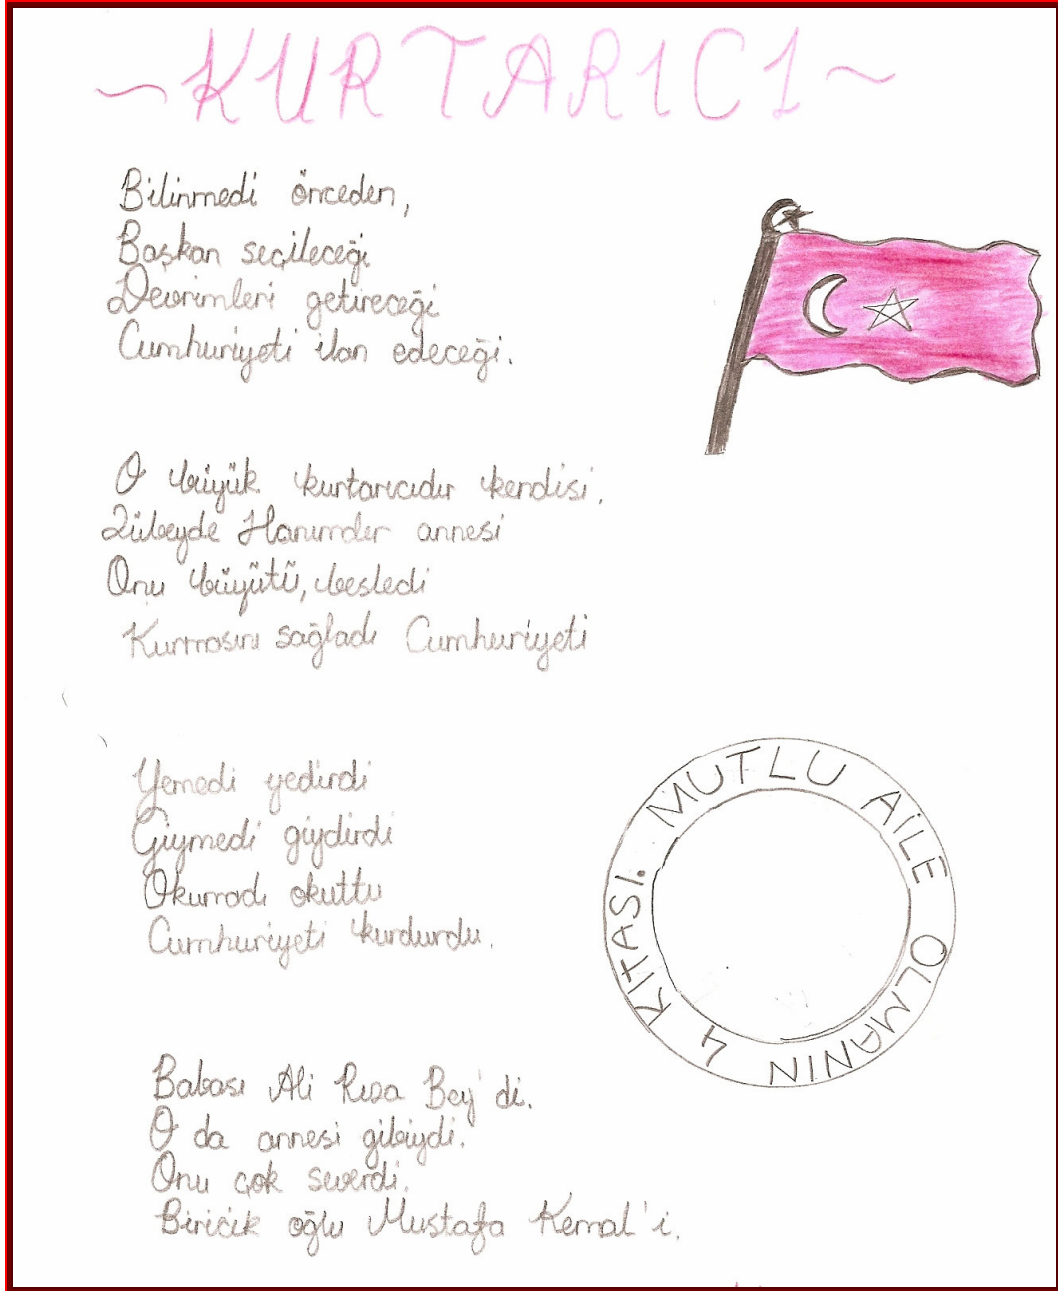 ~KURTARICI~
Bilinmedi önceden,
Başkan seçileceği
Devrimleri getireceği
Cumhuriyeti ilan edeceği.
O büyük kurtarıcıdır kendisi.
Zübeyde Hanımdır annesi
Onu büyütü, besledi
Kurmasını sağladı Cumhuriyeti
Yemedi yedirdi
Giymedi giydirdi
Okumadı okuttu
Cumhuriyeti kurdurdu.
MUTLU AİLE OLMANIN 4 KITASI.
Babası Ali Rıza Bey'di.
O da annesi gibiydi.
Onu çok severdi.
Biricik oğlu Mustafa Kemal'i.